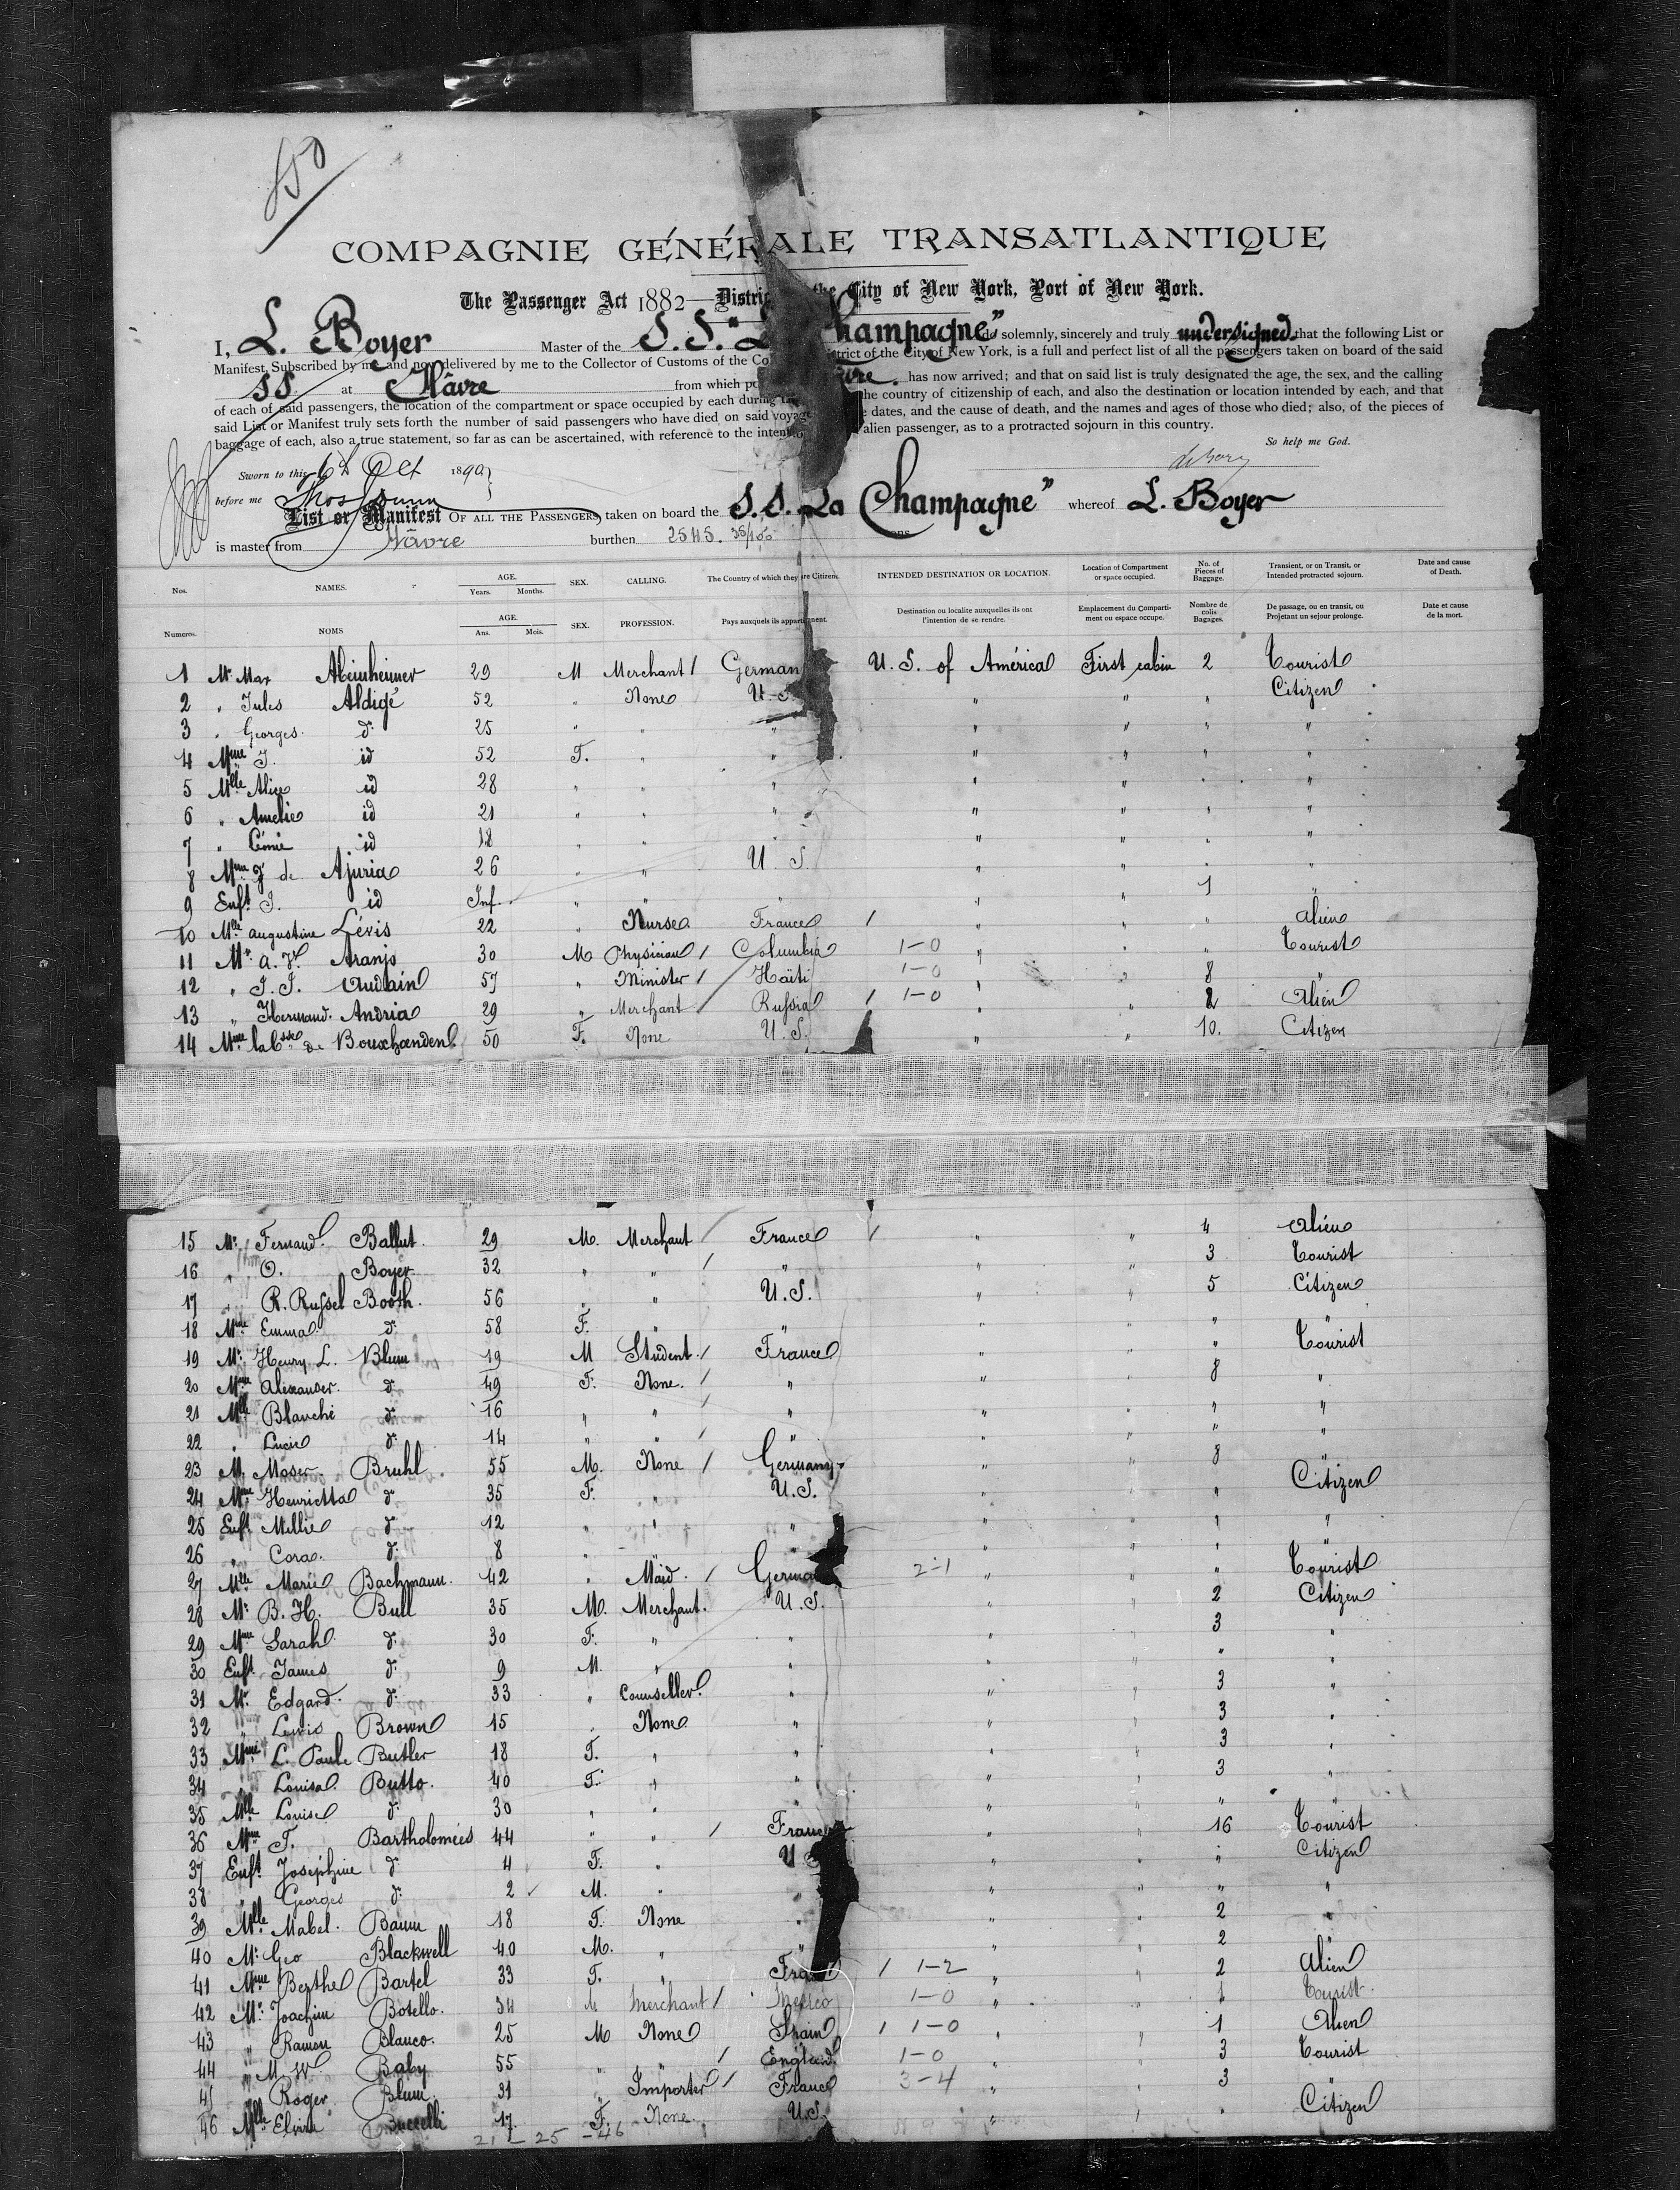 850
COMPAGNIE GÉNÉRALE TRANSATLANTIQUE
The Passenger Act 1882—District the City of New York, Port of New York.
I, L. Boyer Master of the S.S. "La Champagne" do solemnly, sincerely and truly undersigned that the following List or
Manifest, Subscribed by me and now delivered by me to the Collector of Customs of the Co District of the City of New York, is a full and perfect list of all the passengers taken on board of the said
SS at Hâvre from which po Hâvre. has now arrived; and that on said list is truly designated the age, the sex, and the calling
of each of said passengers, the location of the compartment or space occupied by each during the the country of citizenship of each, and also the destination or location intended by each, and that
said List or Manifest truly sets forth the number of said passengers who have died on said voyage dates, and the cause of death, and the names and ages of those who died; also, of the pieces of
baggage of each, also a true statement, so far as can be ascertained, with reference to the intention alien passenger, as to a protracted sojourn in this country.
So help me God.
Sworn to this 6th Oct 1890
before me Thos Dunn
List or Manifest OF ALL THE PASSENGERS, taken on board the S.S. La Champagne" whereof L. Boyer
is master from Hâvre burthen 2545. 35/100
Nos. NAMES. AGE. Years. Months. SEX. CALLING. The Country of which they are Citizens. INTENDED DESTINATION OR LOCATION. Location of Compartment or space occupied. No. of Pieces of Baggage. Transient, or on Transit, or Intended protracted sojourn. Date and cause of Death.
Numeros. NOMS AGE. Ans. Mois. SEX. PROFESSION. Pays auxquels ils appartiennent. Destination ou localite auxquelles ils ont l'intention de se rendre. Emplacement du Compartiment ou espace occupe. Nombre de colis Bagages. De passage, ou en transit, ou Projetant un sejour prolonge. Date et cause de la mort.
1 Mr Max Abeinheimer 29 M Merchant / German U. S. of América First cabin 2 Tourist
2 " Jules Aldigé 52 " None U. S. " " " Citizen
3 " Georges do 25 " " " " " " "
4 Mme J. id 52 F. " " " " " "
5 Mlle Alice id 28 " " " " " " "
6 " Amelie id 21 " " " " " " "
7 " id 18 " " " " " " "
8 Mme J de Ajuria 26 " " U. S. " " " "
9 Enft J. id Inf. " " " " " 1 "
10 Mlle Augustine Lévis 22 " Nurse France / " " " Alien
11 Mr A. Aranjo 30 M Physician / Columbia 1-0 " " " Tourist
12 " J. J. Audain 57 " Minister / Haïti 1-0 " " 8
13 " Hermand. Andria 29 " Merchant / Russia / 1-0 " " 2 Alien
14 Mme la Csse de Bouxhoenden 50 F. None U. S. " " 10. Citizen
15 Mr Fernand Ballut 29 M. Merchant / France / " " 4 Alien
16 " O. Boyer 32 " " / " " " 3 Tourist
17 " R. Russel Booth. 56 " " U. S. " " 5 Citizen
18 Mme Emma do 58 F. " " " " " "
19 Mr Henry L. Blum 19 M Student / France " " " Tourist
20 Mme Alexander do 49 F. None. / " " " 8 "
21 Mlle Blanche do 16 " " / " " " " "
22 " Lucie do 14 " " / " " " " "
23 M. Moser Bruhl 55 M. None / Germany " " 8 "
24 Mme Henrietta do 35 F. " U. S. " " " Citizen
25 Enft Millie do 12 " " " " " " "
26 " Cora do 8 " " " " " " "
27 Mlle Marie Bachmann. 42 " Maid. / German 2-1 " " " Tourist
28 Mr B. H. Bull 35 M. Merchant. U. S. " " 2 Citizen
29 Mme Sarah do 30 F. " " " " 3 "
30 Enft James do 9 M. " " " " " "
31 Mr Edgard do 33 " Counseller " " " 3 "
32 " Lewis Brown 15 " None " " " 3 "
33 Mme L. Paule Butler 18 F. " " " " 3 "
34 " Louisa Butto. 40 F. " " " " 3 "
35 Mlle Louise do 30 " " " " " " "
36 Mme F. Bartholomées 44 " " / France " " 16 Tourist
37 Enft Josephine do 4 F. " U S " " " Citizen
38 " Georges do 2 M. " " " " " "
39 Mlle Mabel. Baum 18 F. None " " " 2 "
40 Mr Geo Blackwell 40 M. " " " " 2 "
41 Mme Berthe Bartel 33 F. " France / 1-2 " " 2 Alien
42 Mr Joachim Botello. 34 M Merchant / Mexico 1-0 " " 1 Tourist
43 " Ramon Blanco. 25 M None Spain / 1-0 " " 1 Alien
44 " M. W Baby 55 " " / England 1-0 " " 3 Tourist
45 " Roger Blum 31 " Importer / France 3-4 " " 3 "
46 Mlle Elvira 17. F. None. U.S. " " " Citizen
21 - 25 - 46